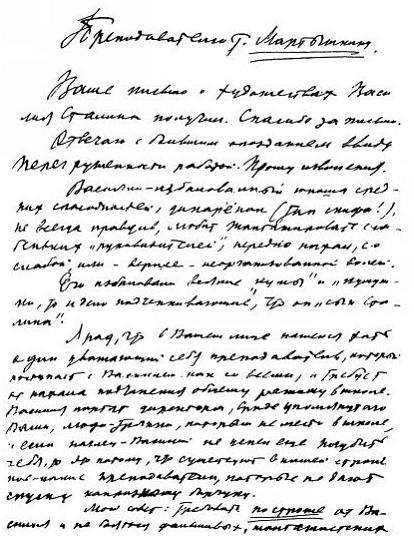 Преподавателю т. Мартышину.
Ваше письмо о художествах Васи-
лия Сталина получил. Спасибо за письмо.
Отвечаю с большим опозданием ввиду
перегруженности работой. Прошу извинения.
Василий – избалованный юноша сред-
них способностей, дикарёнок (тип скифа!),
не всегда правдив, любит шантажировать сла-
беньких „руководителей", нередко нахал, со
слабой или – вернее – неорганизованной волей.
Его избаловали всякие „кумы" и „кумуш-
ки", то и дело подчеркивающие, что он „сын Ста-
лина".
Я рад, что в Вашем лице нашелся хоть
один уважающий себя преподаватель, который
поступает с Василием как со всеми, и требует
от нахала подчинения общему режиму в школе.
Василия портят директора, вроде упомянутого
Вами, люди-тряпки, которым не место в школе,
и если наглец-Василий не успел еще погубить
себя, то это потому, что существуют в нашей стране
кое-какие преподаватели, которые не дают
спуску капризному барчуку.
Мой совет: требовать построже от Ва-
силия и не бояться фальшивых, шантажистских